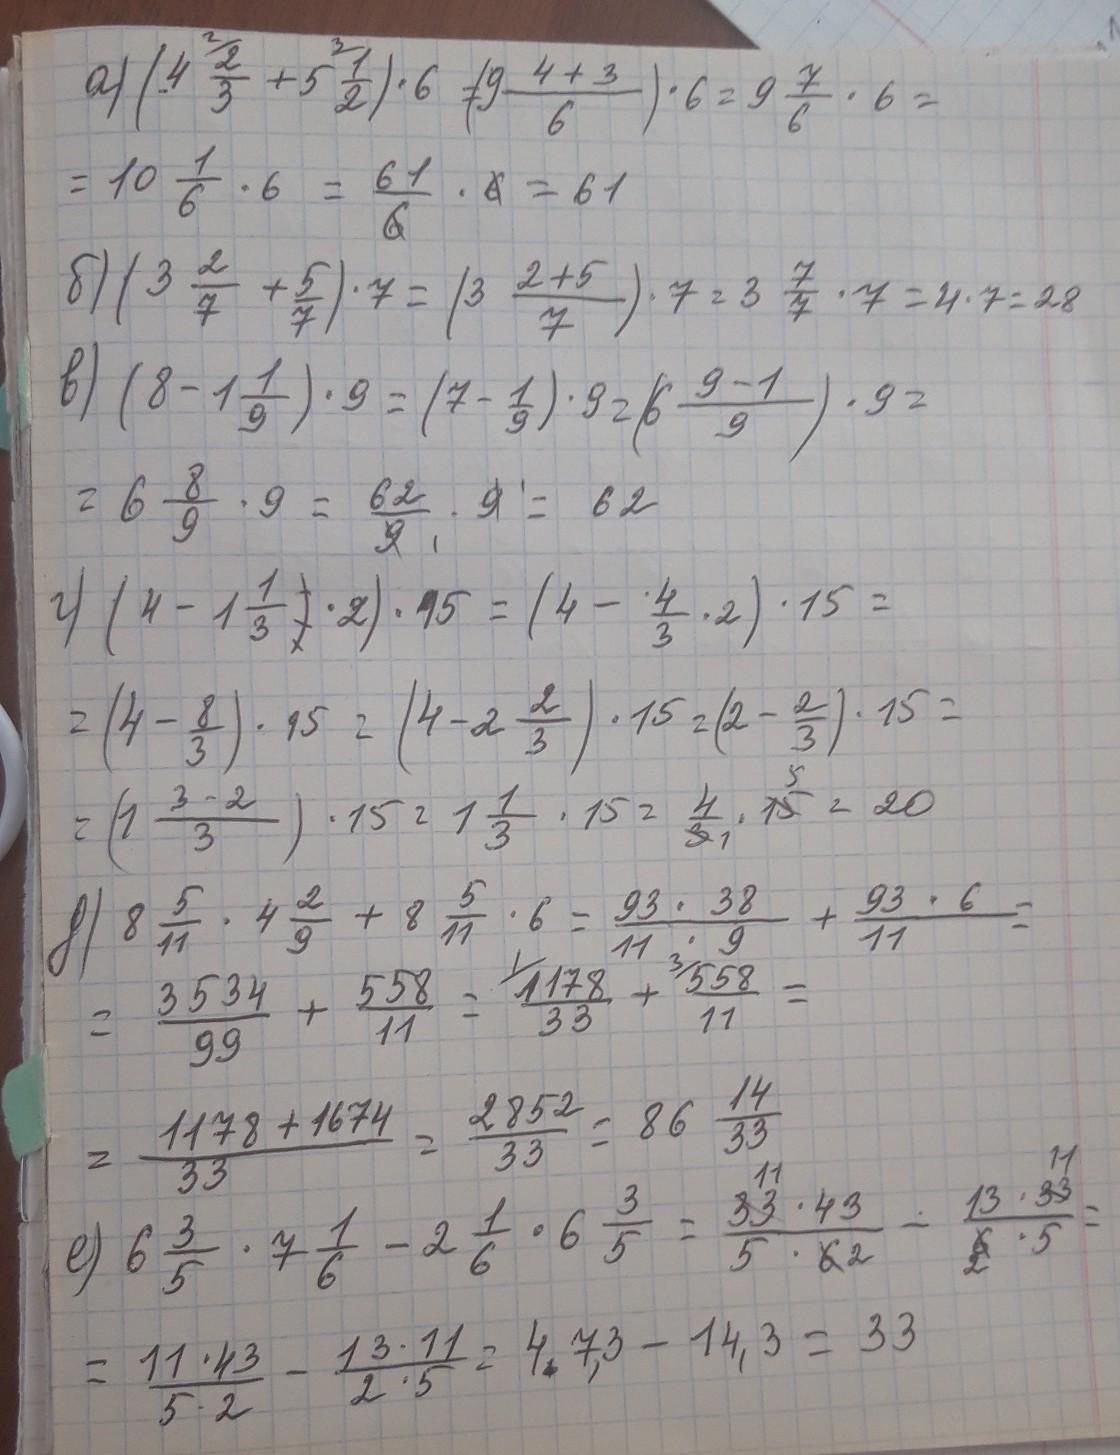 а) (4 2/3 + 5 1/2) · 6 = (9 (4+3)/6) · 6 = 9 7/6 · 6 =
= 10 1/6 · 6 = 61/6 · 6 = 61
б) (3 2/7 + 5/7) · 7 = (3 (2+5)/7) · 7 = 3 7/7 · 7 = 4 · 7 = 28
в) (8 - 1 1/9) · 9 = (7 - 1/9) · 9 = (6 (9-1)/9) · 9 =
= 6 8/9 · 9 = 62/9 · 9 = 62
г) (4 - 1 1/3 · 2) · 15 = (4 - 4/3 · 2) · 15 =
= (4 - 8/3) · 15 = (4 - 2 2/3) · 15 = (2 - 2/3) · 15 =
= (1 (3-2)/3) · 15 = 1 1/3 · 15 = 4/3 · 15 = 20
д) 8 5/11 · 4 2/9 + 8 5/11 · 6 = (93 · 38)/(11 · 9) + (93 · 6)/11 =
= 3534/99 + 558/11 = 1178/33 + 558/11 =
= (1178 + 1674)/33 = 2852/33 = 86 14/33
е) 6 3/5 · 7 1/6 - 2 1/6 · 6 3/5 = (33 · 43)/(5 · 6) - (13 · 33)/(6 · 5) =
= (11 · 43)/(5 · 2) - (13 · 11)/(2 · 5) = 47,3 - 14,3 = 33